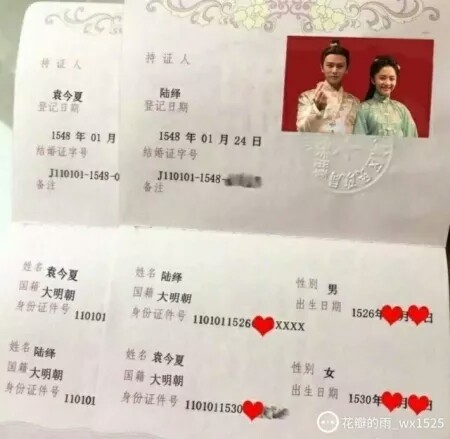 持证人
袁今夏
登记日期
1548 年 01 月
结婚证字号
J110101-1548-0
备注
持证人
陆绎
登记日期
1548 年 01 月 24 日
结婚证字号
J110101-1548-
备注
姓名 袁今夏
国籍 大明朝
身份证件号 110101
姓名 陆绎
国籍 大明朝
身份证件号 1101011526 XXXX
性别 男
出生日期 1526年 月 日
姓名 陆绎
国籍 大明朝
身份证件号 110101
姓名 袁今夏
国籍 大明朝
身份证件号 1101011530
性别 女
出生日期 1530年 月 日
花瓣的雨_wx1525